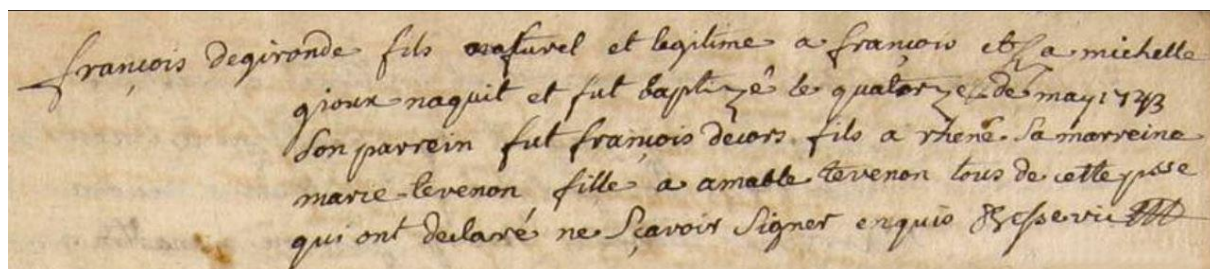 françois degironde fils naturel et legitime a françois et a michelle
gioux naquit et fut baptizé le quatorze de may 1743
son parrein fut françois decors fils a rhené sa marreine
marie tevenon fille a amable tevenon tous de cette psse
qui ont declaré ne sçavoir signer enquis